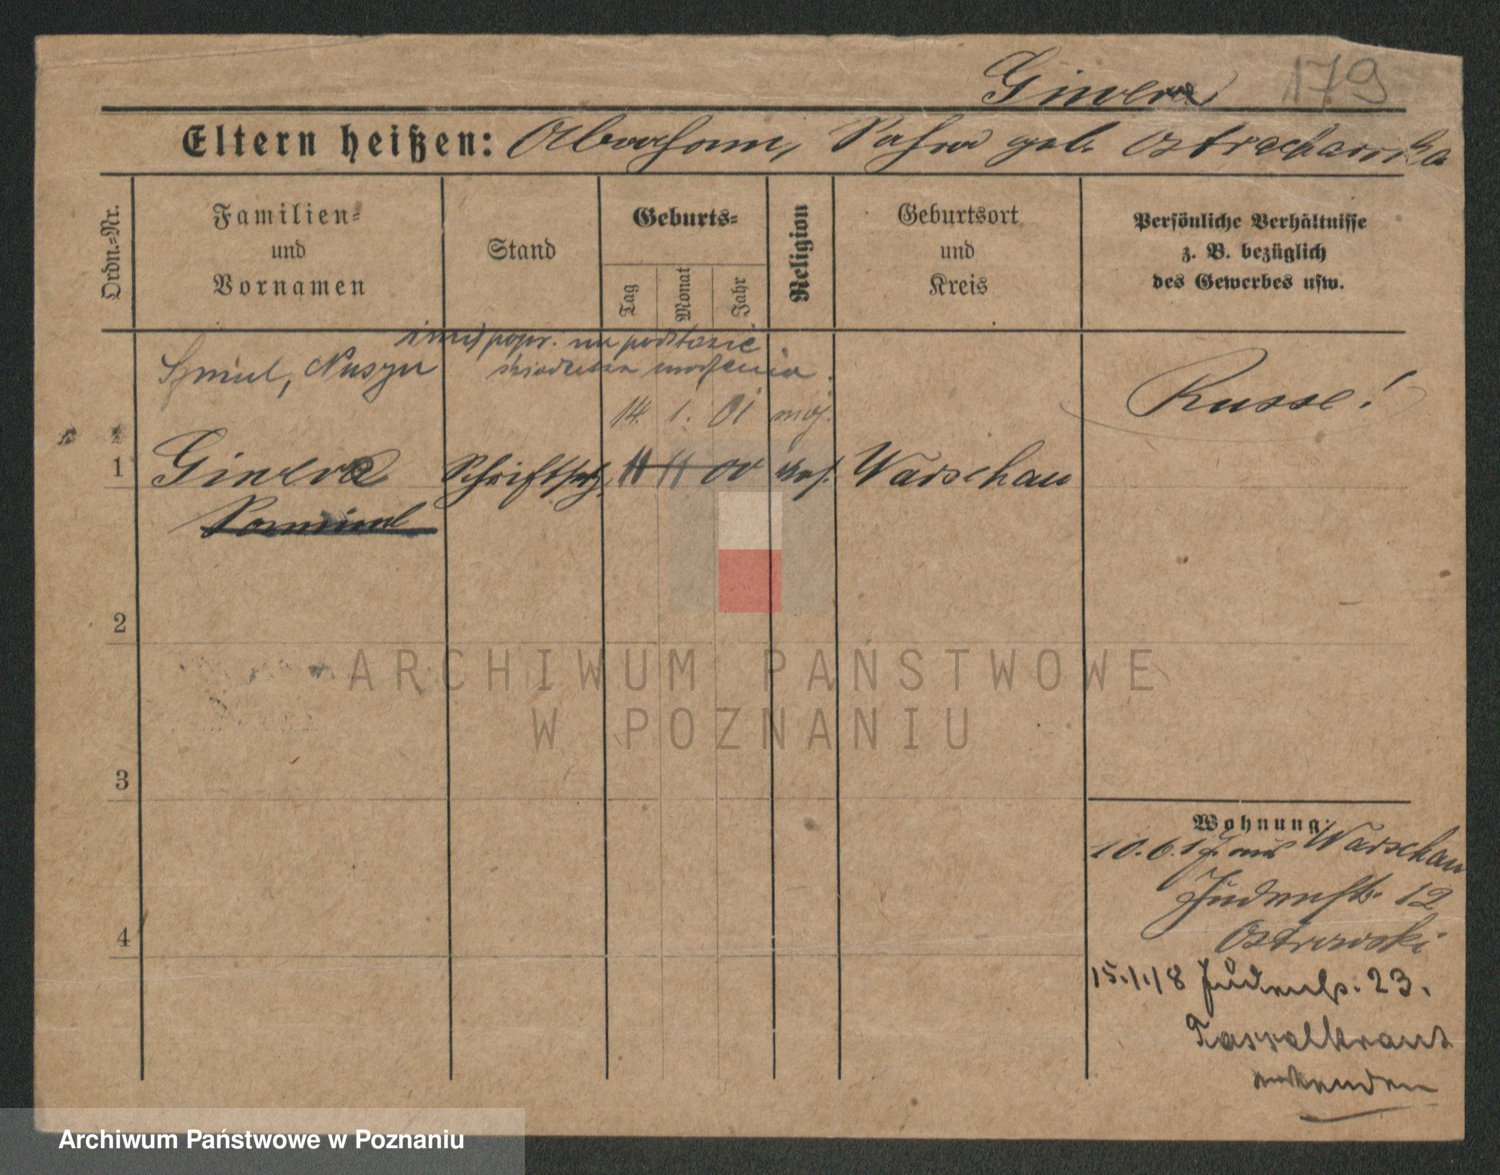 Giwera 179
Eltern heißen: Abraham, Sahra geb. Ostracharzka
Ordn.=Nr.
Familien=
und
Vornamen
Stand
Geburts=
Tag
Monat
Jahr
Religion
Geburtsort
und
Kreis
Persönliche Verhältnisse
z. B. bezüglich
des Gewerbes usw.
imię popr. na podstawie
Szmul, Nuszyn
14. 1. 01 moj.
Russe!
1 Giwera Schriftsetz. 11 11 00 mos. Warschau
2
ARCHIWUM PAŃSTWOWE
W POZNANIU
3
Wohnung:
10.6.17. aus Warschau
Judenstr. 12
Ostrowski
4
15.1.18 Judenstr. 23.
Archiwum Państwowe w Poznaniu